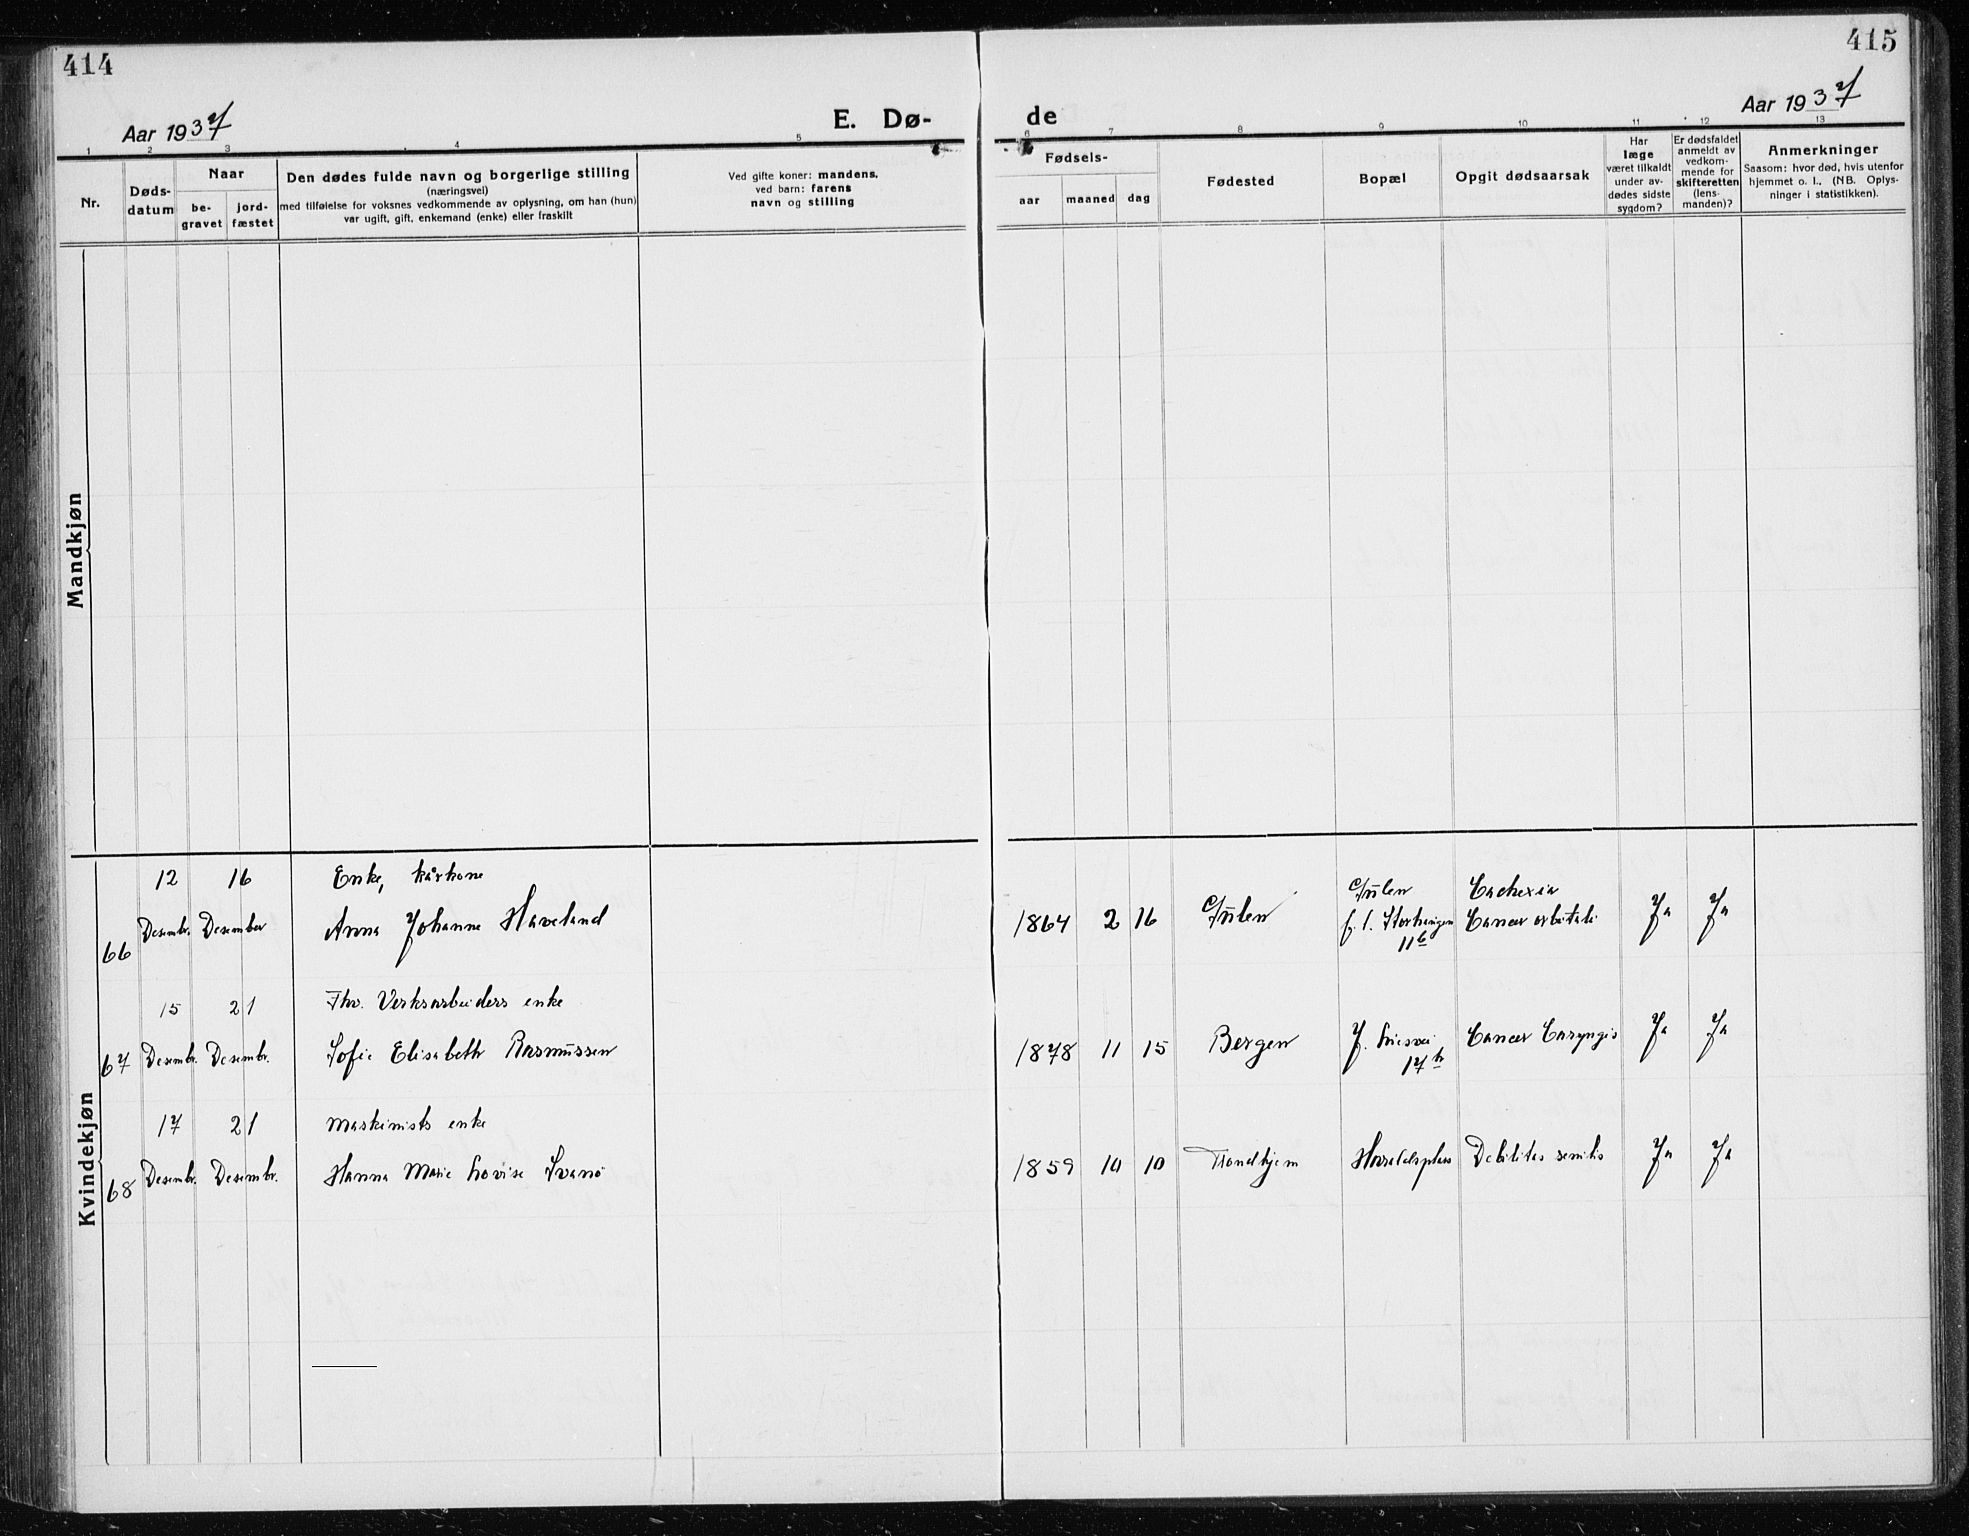 414
415
Aar 1937
E. Dø-
de
Aar 1937
1 2 3 4 5 6 7 8 9 10 11 12 13
Nr.
Døds-
datum
Naar
be-
gravet
jord-
fæstet
Den dødes fulde navn og borgerlige stilling
(næringsvei)
med tilføielse for voksnes vedkommende av oplysning, om han (hun)
var ugift, gift, enkemand (enke) eller fraskilt
Ved gifte koner: mandens,
ved barn: farens
navn og stilling
Fødsels-
aar
maaned
dag
Fødested
Bopæl
Opgit dødsaarsak
Har
læge
været tilkaldt
under av-
dødes sidste
sygdom?
Er dødsfaldet
anmeldt av
vedkom-
mende for
skifteretten
(lens-
manden)?
Anmerkninger
Saasom: hvor død, hvis utenfor
hjemmet o. l., (NB. Oplys-
ninger i statistikken).
Mandkjøn
Kvindekjøn
12 16 Enke, kårkone
66 Desembr. Desember Anna Johanne Haveland 1864 2 16 Gulen
Gulen
f. t. Storhaugen
11b
Cachexia
Cancer orbitali
Ja Ja
15 21 Fhv. Verksarbeiders enke
67 Desembr. Desembr. Sofie Elisabeth Rasmussen 1878 11 15 Bergen
J. Liesvei
17b
Cancer Laryngis Ja Ja
17 21 Maskinists enke
68 Desembr. Desembr. Hanna Marie Lovise Svanö 1859 10 10 Trondhjem Haraldsplass Debilitas senilis Ja Ja